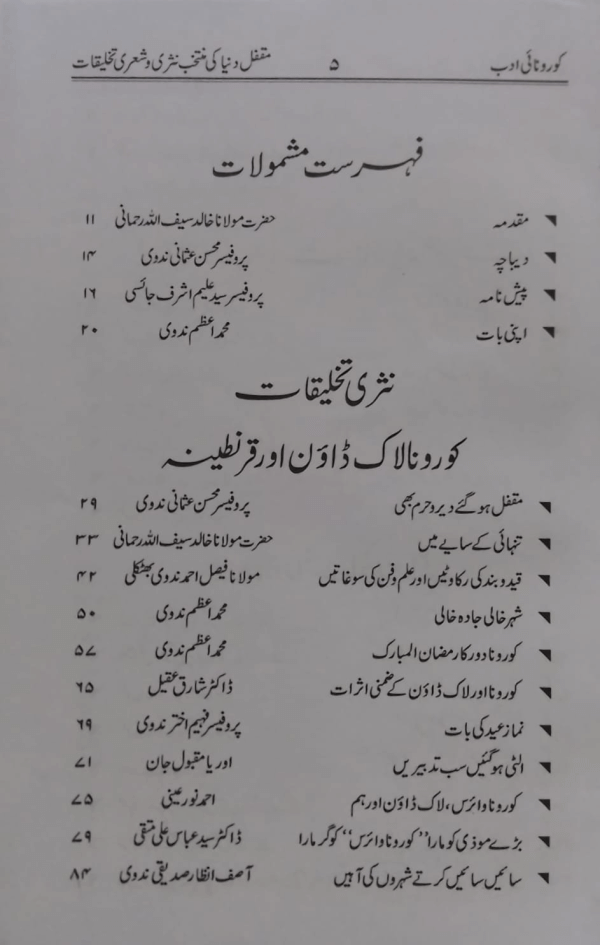 کورونائی ادب ۵ مقفل دنیا کی منتخب نثری و شعری تخلیقات
فہرست مشمولات
مقدمہ حضرت مولانا خالد سیف اللہ رحمانی ۱۱
دیباچہ پروفیسر محسن عثمانی ندوی ۱۴
پیش نامہ پروفیسر سید علیم اشرف جائسی ۱۶
اپنی بات محمد اعظم ندوی ۲۰
نثری تخلیقات
کورونا لاک ڈاؤن اور قرنطینہ
مقفل ہو گئے دیر و حرم بھی پروفیسر محسن عثمانی ندوی ۲۹
تنہائی کے سایے میں حضرت مولانا خالد سیف اللہ رحمانی ۳۳
قید و بند کی رکاوٹیں اور علم و فن کی سوغاتیں مولانا فیصل احمد ندوی بھٹکلی ۴۲
شہر خالی جادہ خالی محمد اعظم ندوی ۵۰
کورونا دور کا رمضان المبارک محمد اعظم ندوی ۵۷
کورونا اور لاک ڈاؤن کے ضمنی اثرات ڈاکٹر شارق عقیل ۶۵
نماز عید کی بات پروفیسر فہیم اختر ندوی ۶۹
الٹی ہو گئیں سب تدبیریں اوریا مقبول جان ۷۱
کورونا وائرس، لاک ڈاؤن اور ہم احمد نور عینی ۷۵
بڑے موذی کو مارا ’’کورونا وائرس‘‘ کو گر مارا ڈاکٹر سید عباس علی متقی ۷۹
سائیں سائیں کرتے شہروں کی آہیں آصف انظار صدیقی ندوی ۸۴